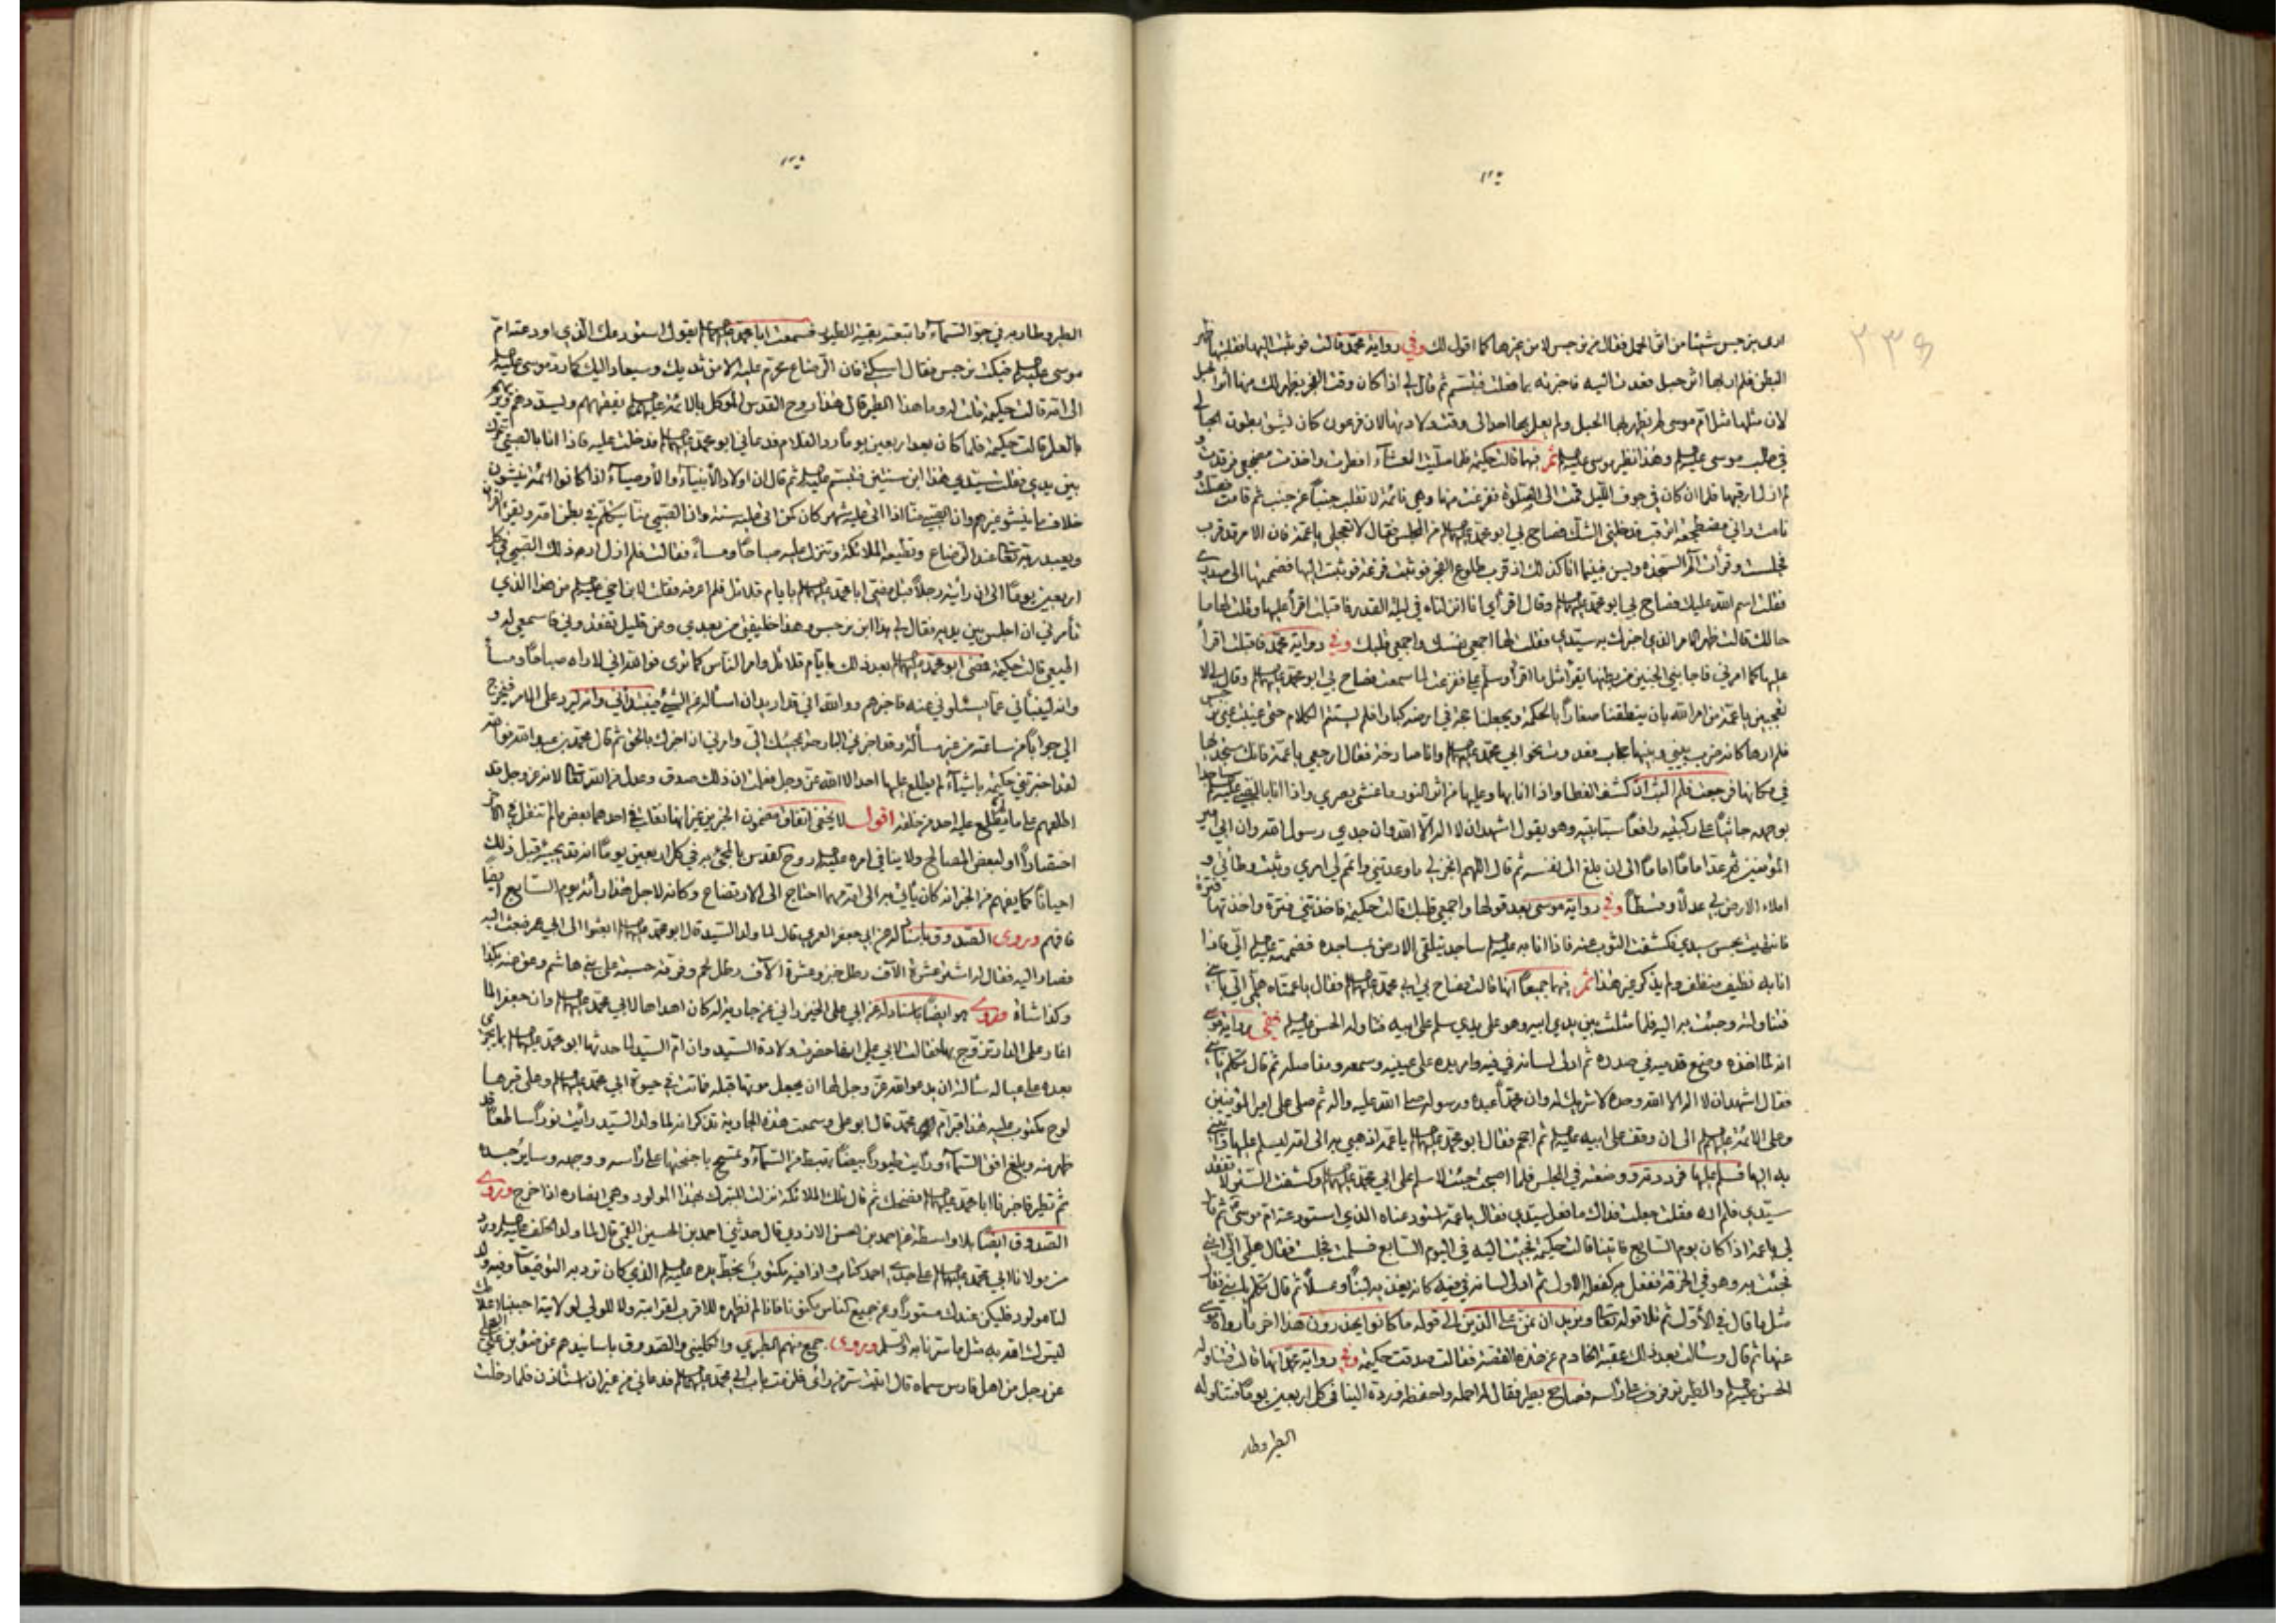 ارى بنرجس شيئا من اثر الحمل فقال من نرجس لا من غيرها كما اقول لك وفي رواية محمد قالت فوثبت اليها فقلبتها ظهر
البطن فلم ار بها اثر حبل فعدت اليه فاخبرته بما فعلت فتبسم ثم قال لي اذا كان وقت الفجر يظهر لك منها اثر الحبل
لان مثلها مثل ام موسى لم يظهر بها الحبل ولم يعلم بها احد الى وقت ولادتها لان فرعون كان يشق بطون الحبالى
في طلب موسى عليه السلم وهذا نظير موسى عليه السلم ثم فيها قالت حكيمة فلما صليت العشاء افطرت واخذت مضجعي فرقدت و
لم ازل ارقبها فلما ان كان في جوف الليل قمت الى الصلوة ففرغت منها وهي نائمة لا تقلب جنبا عن جنب ثم قامت فصلت و
نامت واني مضطجعة ارقب فدخلني الشك فصاح بي ابو محمد عليه السلم من المجلس فقال لا تعجلي يا عمة فان الامر قد قرب
فجلست وقرأت الم السجدة ويس فبينما انا كذلك اذ قرب طلوع الفجر فوثبت فزعة فوثبت اليها فضممتها الى صدري
فقلت اسم الله عليك فصاح بي ابو محمد عليه السلم وقال اقرأي انا انزلناه في ليلة القدر فاقبلت اقرأ عليها وقلت لها ما
حالك قالت ظهر الامر الذي اخبرك به سيدي فقلت لها اجمعي نفسك واجمعي قلبك وفي رواية محمد فاقبلت اقرأ
عليها كما امرني فاجابني الجنين من بطنها يقرأ مثل ما اقرأ وسلم علي ففزعت لما سمعت فصاح بي ابو محمد عليه السلم وقال لي لا
تعجبين يا عمة من امر الله بان ينطقنا صغارا بالحكمة ويجعلنا حجة في ارضه كبارا فلم يستتم الكلام حتى غيبت عني نرجس
فلم ارها كانه ضرب بيني وبينها حجاب فعدوت نحو ابي محمد عليه السلم وانا صارخة فقال ارجعي يا عمة فانك ستجدها
في مكانها فرجعت فلم البث ان كشف الغطا واذا انا بها وعليها من اثر النور ما غشي بصري واذا انا بالصبي عليه السلم ساجدا
بوجهه جاثيا على ركبتيه رافعا سبابتيه وهو يقول اشهد ان لا اله الا الله وان جدي رسول الله وان ابي امير
المؤمنين ثم عد اماما اماما الى ان بلغ الى نفسه ثم قال اللهم انجز لي ما وعدتني واتمم لي امري وثبت وطأتي و
املاء الارض بي عدلا وقسطا وفي رواية موسى بعد قولها واجمعي قلبك قالت حكيمة فاخذتني فترة واخذتها فترة
فانتبهت بحس سيدي فكشفت الثوب عنه فاذا انا به عليه السلم ساجد يتلقى الارض بمساجده فضممته عليه السلم الي فاذا
انا به نظيف منظف ولم يذكر غير هذا ثم فيها جميعا انها قالت فصاح بي ابو محمد عليه السلم فقال يا عمتاه هلمي الي بابني
فتناولته وجئت به اليه فلما مثلت بين يدي ابيه وهو على يدي سلم على ابيه فتناوله الحسن عليه السلم ففي رواية موسى
انه لما اخذه وضع قدميه في صدره ثم ادلى لسانه في فيه وامر يده على عينيه وسمعه ومفاصله ثم قال تكلم يا بني
فقال اشهد ان لا اله الا الله وحده لا شريك له وان محمدا عبده ورسوله صلى الله عليه واله ثم صلى على امير المؤمنين
وعلى الائمة عليهم السلم الى ان وقف على ابيه عليه السلم ثم احجم فقال ابو محمد عليه السلم يا عمة اذهبي به الى امه ليسلم عليها وأتيني
به اليها فسلم عليها فرددته ووضعته في المجلس فلما اصبحت جئت لاسلم على ابي محمد عليه السلم وكشفت الستر لاتفقد
سيدي فلم اره فقلت جعلت فداك ما فعل سيدي فقال يا عمة استودعناه الذي استودعته ام موسى ثم قال
لي يا عمة اذا كان يوم السابع فاتينا قالت حكيمة فجئت اليه في اليوم السابع فسلمت فجلست فقال هلمي الي ابني
فجئت به وهو في الخرقة ففعل به كفعله الاول ثم ادلى لسانه في فيه كانه يغذيه لبنا وعسلا ثم قال تكلم يا بني فقال
مثل ما قال في الاول ثم تلا قوله تعالى ونريد ان نمن على الذين الى قوله ما كانوا يحذرون هذا اخر ما رواه موسى
عنها ثم قال وسألت بعد ذلك عقبة الخادم عن هذه القصة فقالت صدقت حكيمة وفي رواية محمد انها قالت فتناوله
الحسن عليه السلم والطير ترفرف على رأسه فصاح بطير فقال له احمله واحفظه ورده الينا في كل اربعين يوما فتناوله
الطير وطار
الطير وطار به في جو السماء واتبعته بقية الطير فسمعت ابا محمد عليه السلم يقول استودعك الذي اودعته ام
موسى عليه السلم فبكت نرجس فقال اسكتي فان الرضاع محرم عليه الا من ثديك وسيعاد اليك كما رد موسى عليه السلم
الى امه قالت حكيمة قلت له وما هذا الطير قال هذا روح القدس الموكل بالائمة عليهم السلم يفقههم ويسددهم ويربيهم
بالعلم قالت حكيمة فلما كان بعد اربعين يوما رد الغلام فدعاني ابو محمد عليه السلم فدخلت عليه فاذا انا بالصبي يتحرك
بين يدي فقلت سيدي هذا ابن سنتين فتبسم عليه السلم ثم قال ان اولاد الانبياء والاوصياء اذا كانوا ائمة ينشؤن
خلاف ما ينشؤ غيرهم وان الصبي منا اذا اتى عليه شهر كان كمن اتى عليه سنة وان الصبي منا يتكلم في بطن امه ويقرأ القرآن
ويعبد ربه تعالى عند الرضاع وتطيعه الملائكة وتنزل عليه صباحا ومساء فقالت فلم ازل ارى ذلك الصبي في كل
اربعين يوما الى ان رأيته رجلا قبل مضي ابا محمد عليه السلم بايام قلائل فلم اعرفه فقلت لابن اخي عليه السلم من هذا الذي
تأمرني ان اجلس بين يديه فقال لي هذا ابن نرجس وهذا خليفتي من بعدي وعن قليل تفقدوني فاسمعي له و
اطيعي قالت حكيمة فمضى ابو محمد عليه السلم بعد ذلك بايام قلائل وامر الناس كما ترى فوالله اني لاراه صباحا ومساء
وانه لينبأني عما يسئلوني عنه فاخبرهم ووالله اني قد اريد ان اسأله عن الشئ فيبتدأني وانه ليرد على الامر فيخرج
الي جوابا من ساعته من غير مسألة وقد اخبرني البارحة بمجيئك الي وامرني ان اخبرك بالحق ثم قال محمد بن عبد الله فوالله
لقد اخبرتني حكيمة باشياء لم يطلع عليها احد الا الله عز وجل فعلمت ان ذلك صدق وعدل من الله تعالى لانه عز وجل قد
اطلعهم على ما لم يطلع عليه احد من خلقه اقول لا يخفى اتفاق مضمون الخبرين غير انها نقلت في احدهما بعض ما لم تنقل في الاخر
اختصارا او لبعض المصالح ولا ينافي امره عليه السلم روح القدس بالمجئ به في كل اربعين يوما انه قد يجيئ قبل ذلك
احيانا كما يفهم من الخبر انه كان يأتي به الى امه مهما احتاج الى الارتضاع وكانه لاجل هذا رأته يوم السابع ايضا
فافهم وروى الصدوق باسناد له عن ابي جعفر العمري قال لما ولد السيد قال ابو محمد عليه السلم ابعثوا الى ابي عمر فبعث اليه
فصار اليه فقال له اشتر عشرة الاف رطل خبز وعشرة الاف رطل لحم وفرقه حسبة على بني هاشم وعق عنه بكذا
وكذا شاة وروى هو ايضا باسناد له عن ابي علي الخيزراني عن جارية له كان اهداها لابي محمد عليه السلم وان جعفر لما
اغار على الدار تزوج بها فقالت لابي علي انها حضرت ولادة السيد وان ام السيد لما حدثها ابو محمد عليه السلم بما يجري
بعده على عياله سألته ان يدعو الله عز وجل لها ان يجعل موتها قبله فماتت في حيوة ابي محمد عليه السلم وعلى قبرها
لوح مكتوب عليه هذا قبر ام محمد قال ابو علي وسمعت هذه الجارية تذكر انه لما ولد السيد رأيت نورا ساطعا قد
ظهر منه وبلغ افق السماء ورأيت طيورا بيضا تهبط من السماء وتمسح باجنحتها على رأسه ووجهه وساير جسده
ثم تطير فاخبرنا ابا محمد عليه السلم فضحك ثم قال تلك الملائكة نزلت للتبرك بهذا المولود وهي انصاره اذا خرج وروى
الصدوق ايضا بلا واسطة عن احمد بن الحسن الازدي قال حدثني احمد بن الحسين القمي قال لما ولد الخلف عليه السلم ورد
من مولانا ابي محمد عليه السلم على جدي احمد كتاب واذا فيه مكتوب بخط يده عليه السلم الذي كان ترد به التوقيعات وفيه ولد
لنا مولود فليكن عندك مستورا وعن جميع الناس مكتوما فانا لم نظهره الا للاقرب لقرابته والا للولي لولايته احببنا اعلامك
ليسرك الله به مثل ما سرنا به والسلم وروى جمع منهم الطبري والكليني والصدوق باسانيدهم عن ضوء بن علي العجلي
عن رجل من اهل فارس سماه قال اتيت سر من رأى فلزمت باب ابي محمد عليه السلم فدعاني من غير ان استأذن فلما دخلت